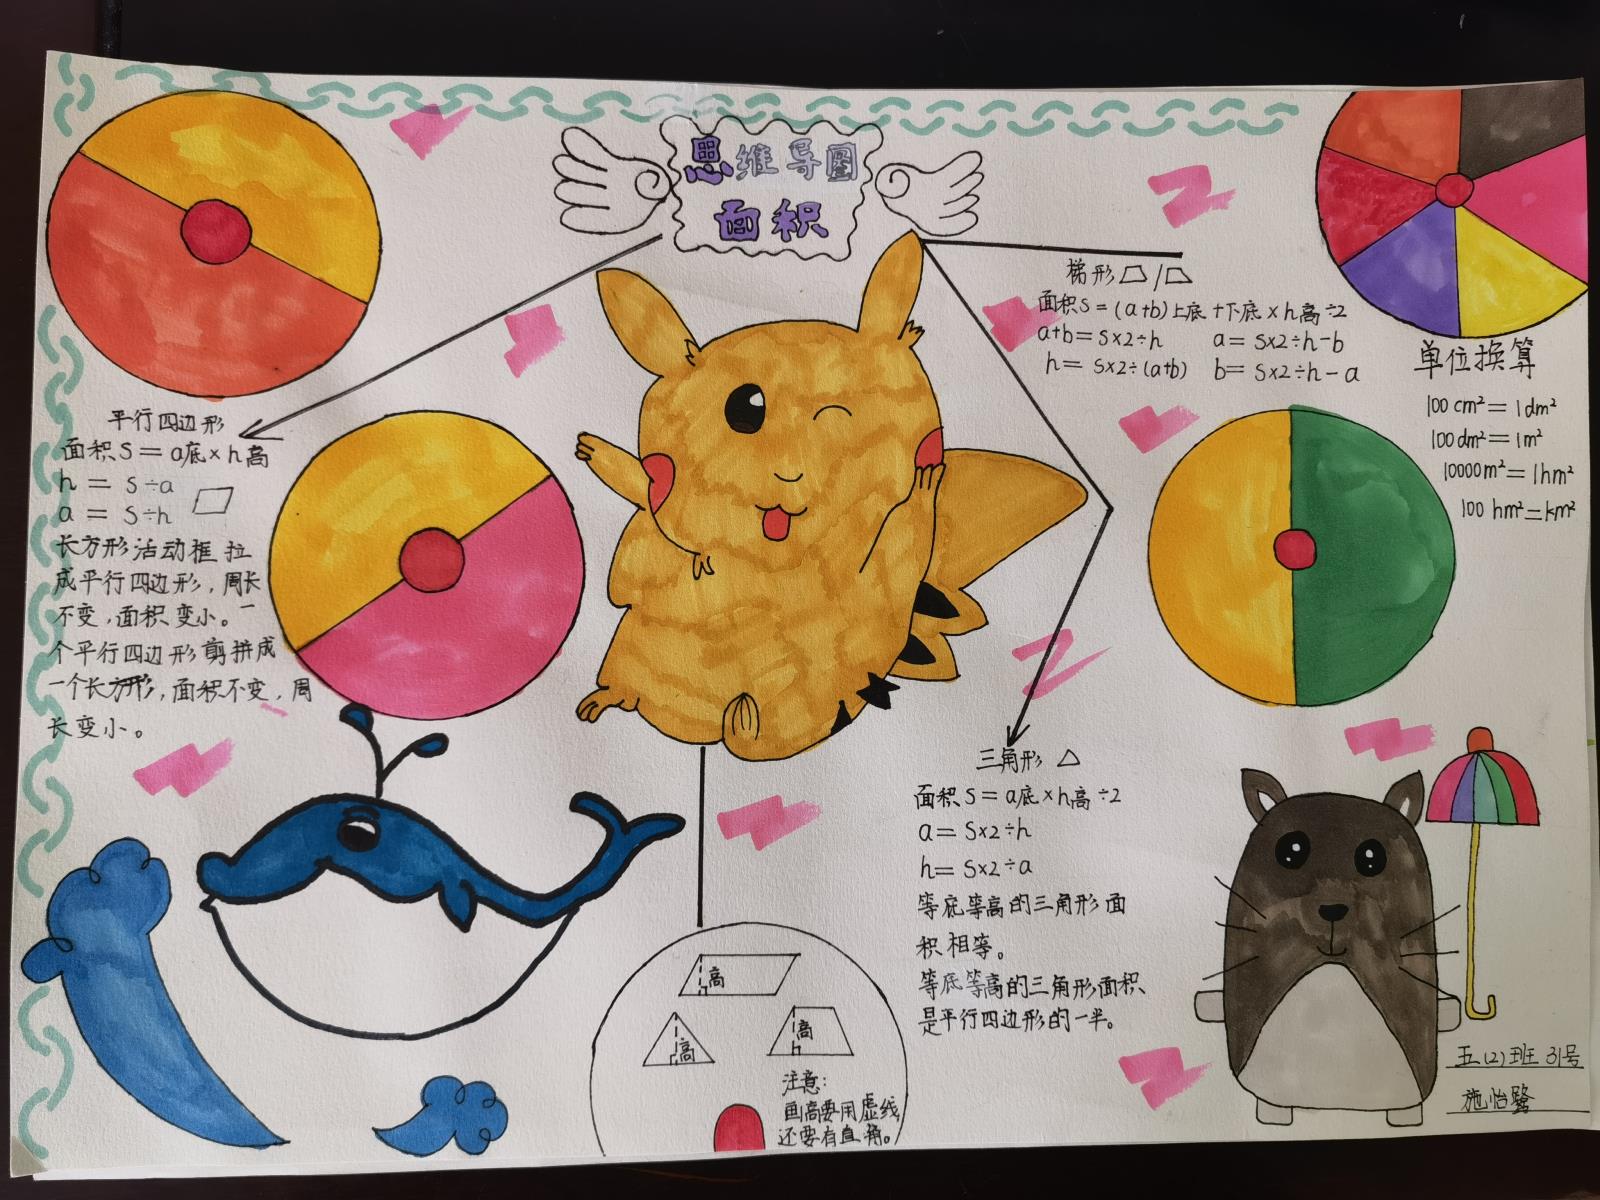 思维导图
面积
平行四边形
面积S=a底×h高
h=S÷a
a=S÷h
长方形活动框拉
成平行四边形，周长
不变，面积变小。一
个平行四边形剪拼成
一个长方形，面积不变，周
长变小。
梯形
面积S=(a+b)上底+下底×h高÷2
a+b=S×2÷h a=S×2÷h-b
h=S×2÷(a+b) b=S×2÷h-a
单位换算
100cm²=1dm²
100dm²=1m²
10000m²=1hm²
100hm²=km²
三角形
面积S=a底×h高÷2
a=S×2÷h
h=S×2÷a
等底等高的三角形面
积相等。
等底等高的三角形面积
是平行四边形的一半。
高
高
高
注意：
画高要用虚线
还要有直角。
五(2)班31号
施怡鹭